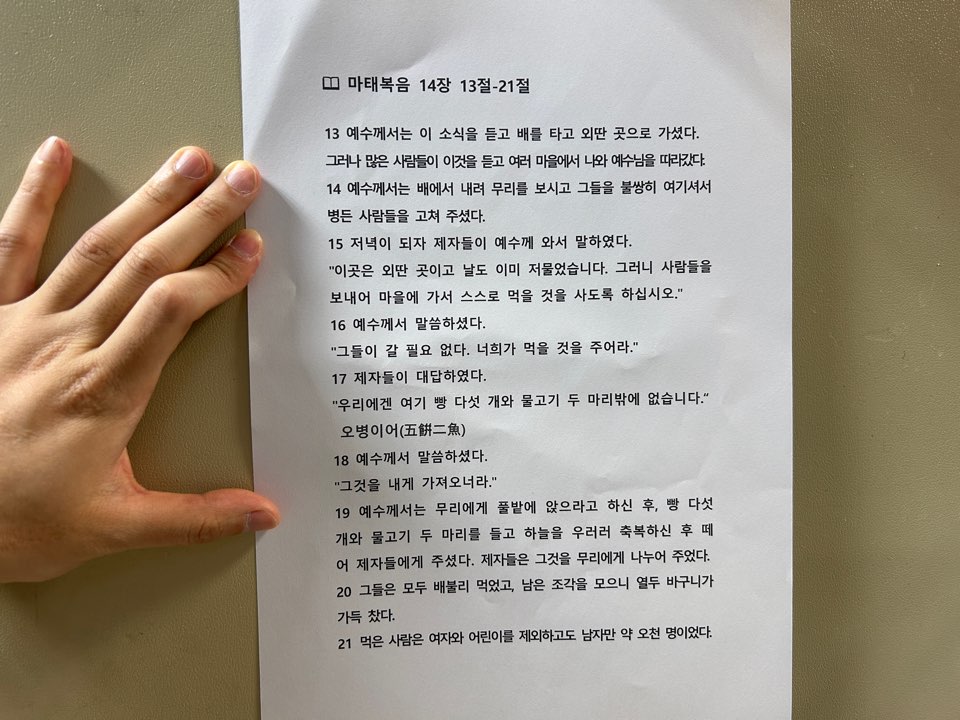 📖 마태복음 14장 13절-21절
13 예수께서는 이 소식을 듣고 배를 타고 외딴 곳으로 가셨다.
그러나 많은 사람들이 이것을 듣고 여러 마을에서 나와 예수님을 따라갔다.
14 예수께서는 배에서 내려 무리를 보시고 그들을 불쌍히 여기셔서
병든 사람들을 고쳐 주셨다.
15 저녁이 되자 제자들이 예수께 와서 말하였다.
"이곳은 외딴 곳이고 날도 이미 저물었습니다. 그러니 사람들을
보내어 마을에 가서 스스로 먹을 것을 사도록 하십시오."
16 예수께서 말씀하셨다.
"그들이 갈 필요 없다. 너희가 먹을 것을 주어라."
17 제자들이 대답하였다.
"우리에겐 여기 빵 다섯 개와 물고기 두 마리밖에 없습니다.“
오병이어(五餠二魚)
18 예수께서 말씀하셨다.
"그것을 내게 가져오너라."
19 예수께서는 무리에게 풀밭에 앉으라고 하신 후, 빵 다섯
개와 물고기 두 마리를 들고 하늘을 우러러 축복하신 후 떼
어 제자들에게 주셨다. 제자들은 그것을 무리에게 나누어 주었다.
20 그들은 모두 배불리 먹었고, 남은 조각을 모으니 열두 바구니가
가득 찼다.
21 먹은 사람은 여자와 어린이를 제외하고도 남자만 약 오천 명이었다.